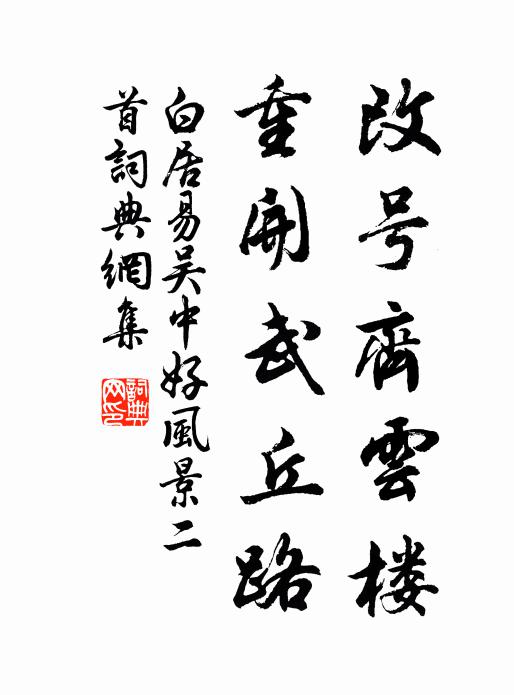 改号齊雲楼
重開武丘路
白居易吴中好風景二
首詞典網集
詞典
网印